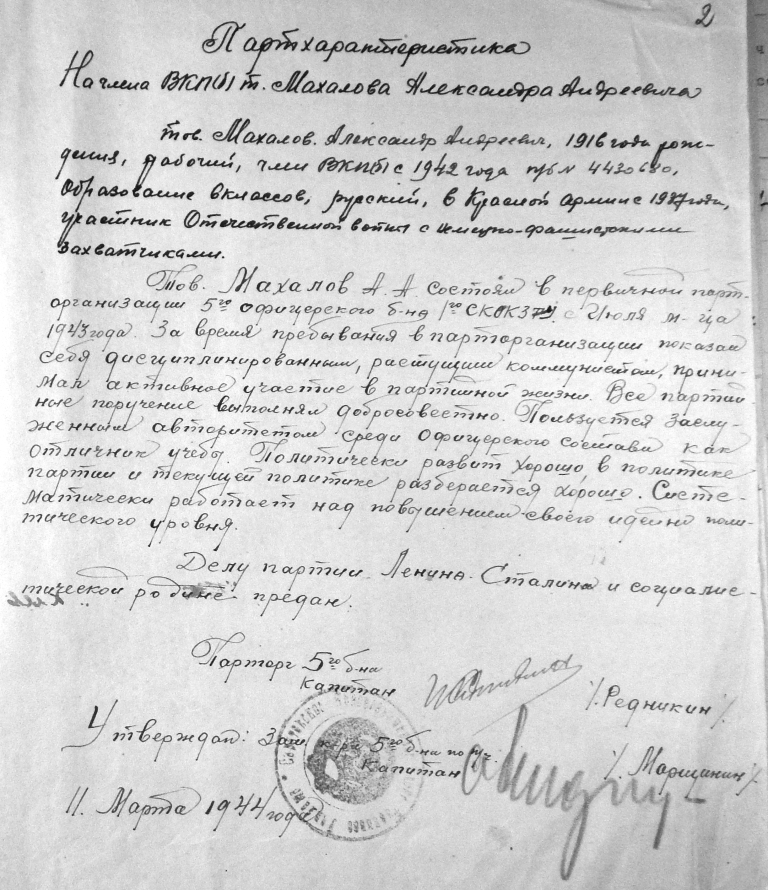 2
Партхарактеристика
На члена ВКП(б) т. Махалова Александра Андреевича
тов. Махалов. Александр Андреевич, 1916 года рож-
дения, рабочий, член ВКП(б) с 1942 года п/б №
Образование 8 классов, русский, в Красной армии с 1937 года,
участник Отечественной войны с немецко-фашистскими
захватчиками.
Тов. Махалов А. А. состоял в первичной парт-
организации 5го офицерского б-на 1го с Июля м-ца
1943 года. За время пребывания в парторганизации показал
себя дисциплинированным, растущим коммунистом, прини-
мал активное участие в партийной жизни. Все партий
ные поручение выполнял добросовестно. Пользуется заслу-
женным авторитетом среди офицерского состава как
отличник учебы. Политически развит хорошо в политике
партии и текущей политике разберается хорошо. Систе-
матически работает над повышением своего идейно поли-
тического уровня.
Делу партии Ленина-Сталина и социалис-
тической родине предан.
Парторг 5го б-на
Капитан /Редникин/
Утверждаю: Зам. кдра 5го б-на по п/ч.
Капитан /Марщинин/
11. Марта 1944 года